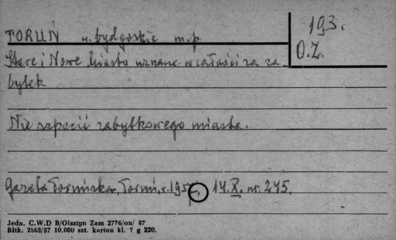 TORUŃ w. bydgoskie m.p
193.
O.Z.
Stare i Nowe Miasto uznane w całości za za
bytek
Nie szpecić zabytkowego miasta.
Gazeta Toruńska, Toruń, r. 195 14.X. nr. 245.
Jedn. C.W.D B/Olsztyn Zam 2774/on/ 57
Bitk. 2563/57 10.000 szt. karton kl. 7 g 220.